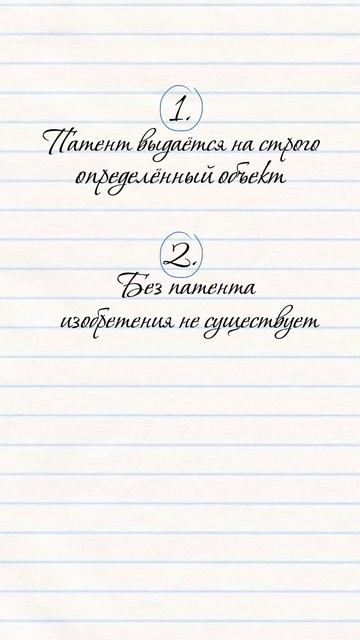 1.
Патент выдаётся на строго
определённый объект
2.
Без патента
изобретения не существует